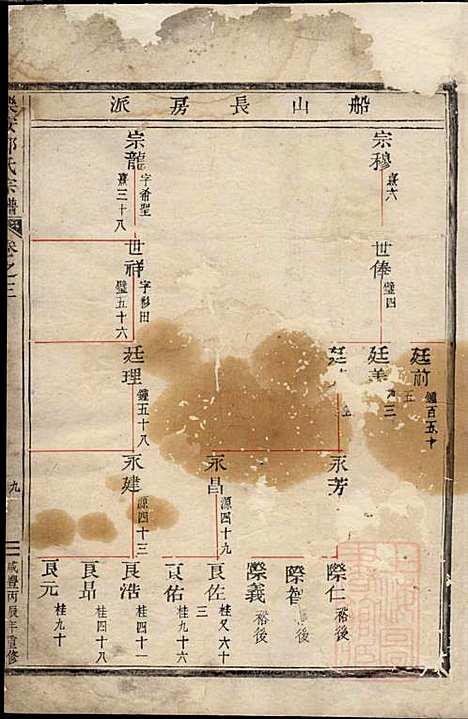 船山長房派
宗穆
熹六
世俸
璧四
廷前
鐘百五十
廷美
三
廷
永芳
際仁
裕後
際智
後
際義
裕後
宗龍
字希聖
熹三十八
世祥
字彩田
璧五十六
廷理
鐘五十八
永昌
源四十九
良佐
桂又六十三
良佑
桂九十六
永建
源四十三
良浩
桂四十一
良昂
桂四十八
良元
桂九十
氏宗譜
卷之二
九
咸豐丙辰年重修